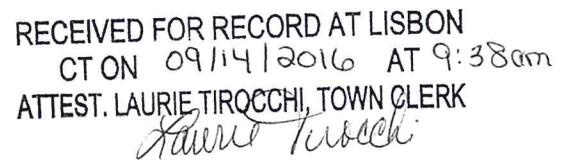 RECEIVED FOR RECORD AT LISBON
CT ON 09/14/2016 AT 9:38am
ATTEST. LAURIE TIROCCHI, TOWN CLERK
Laurie Tirocchi